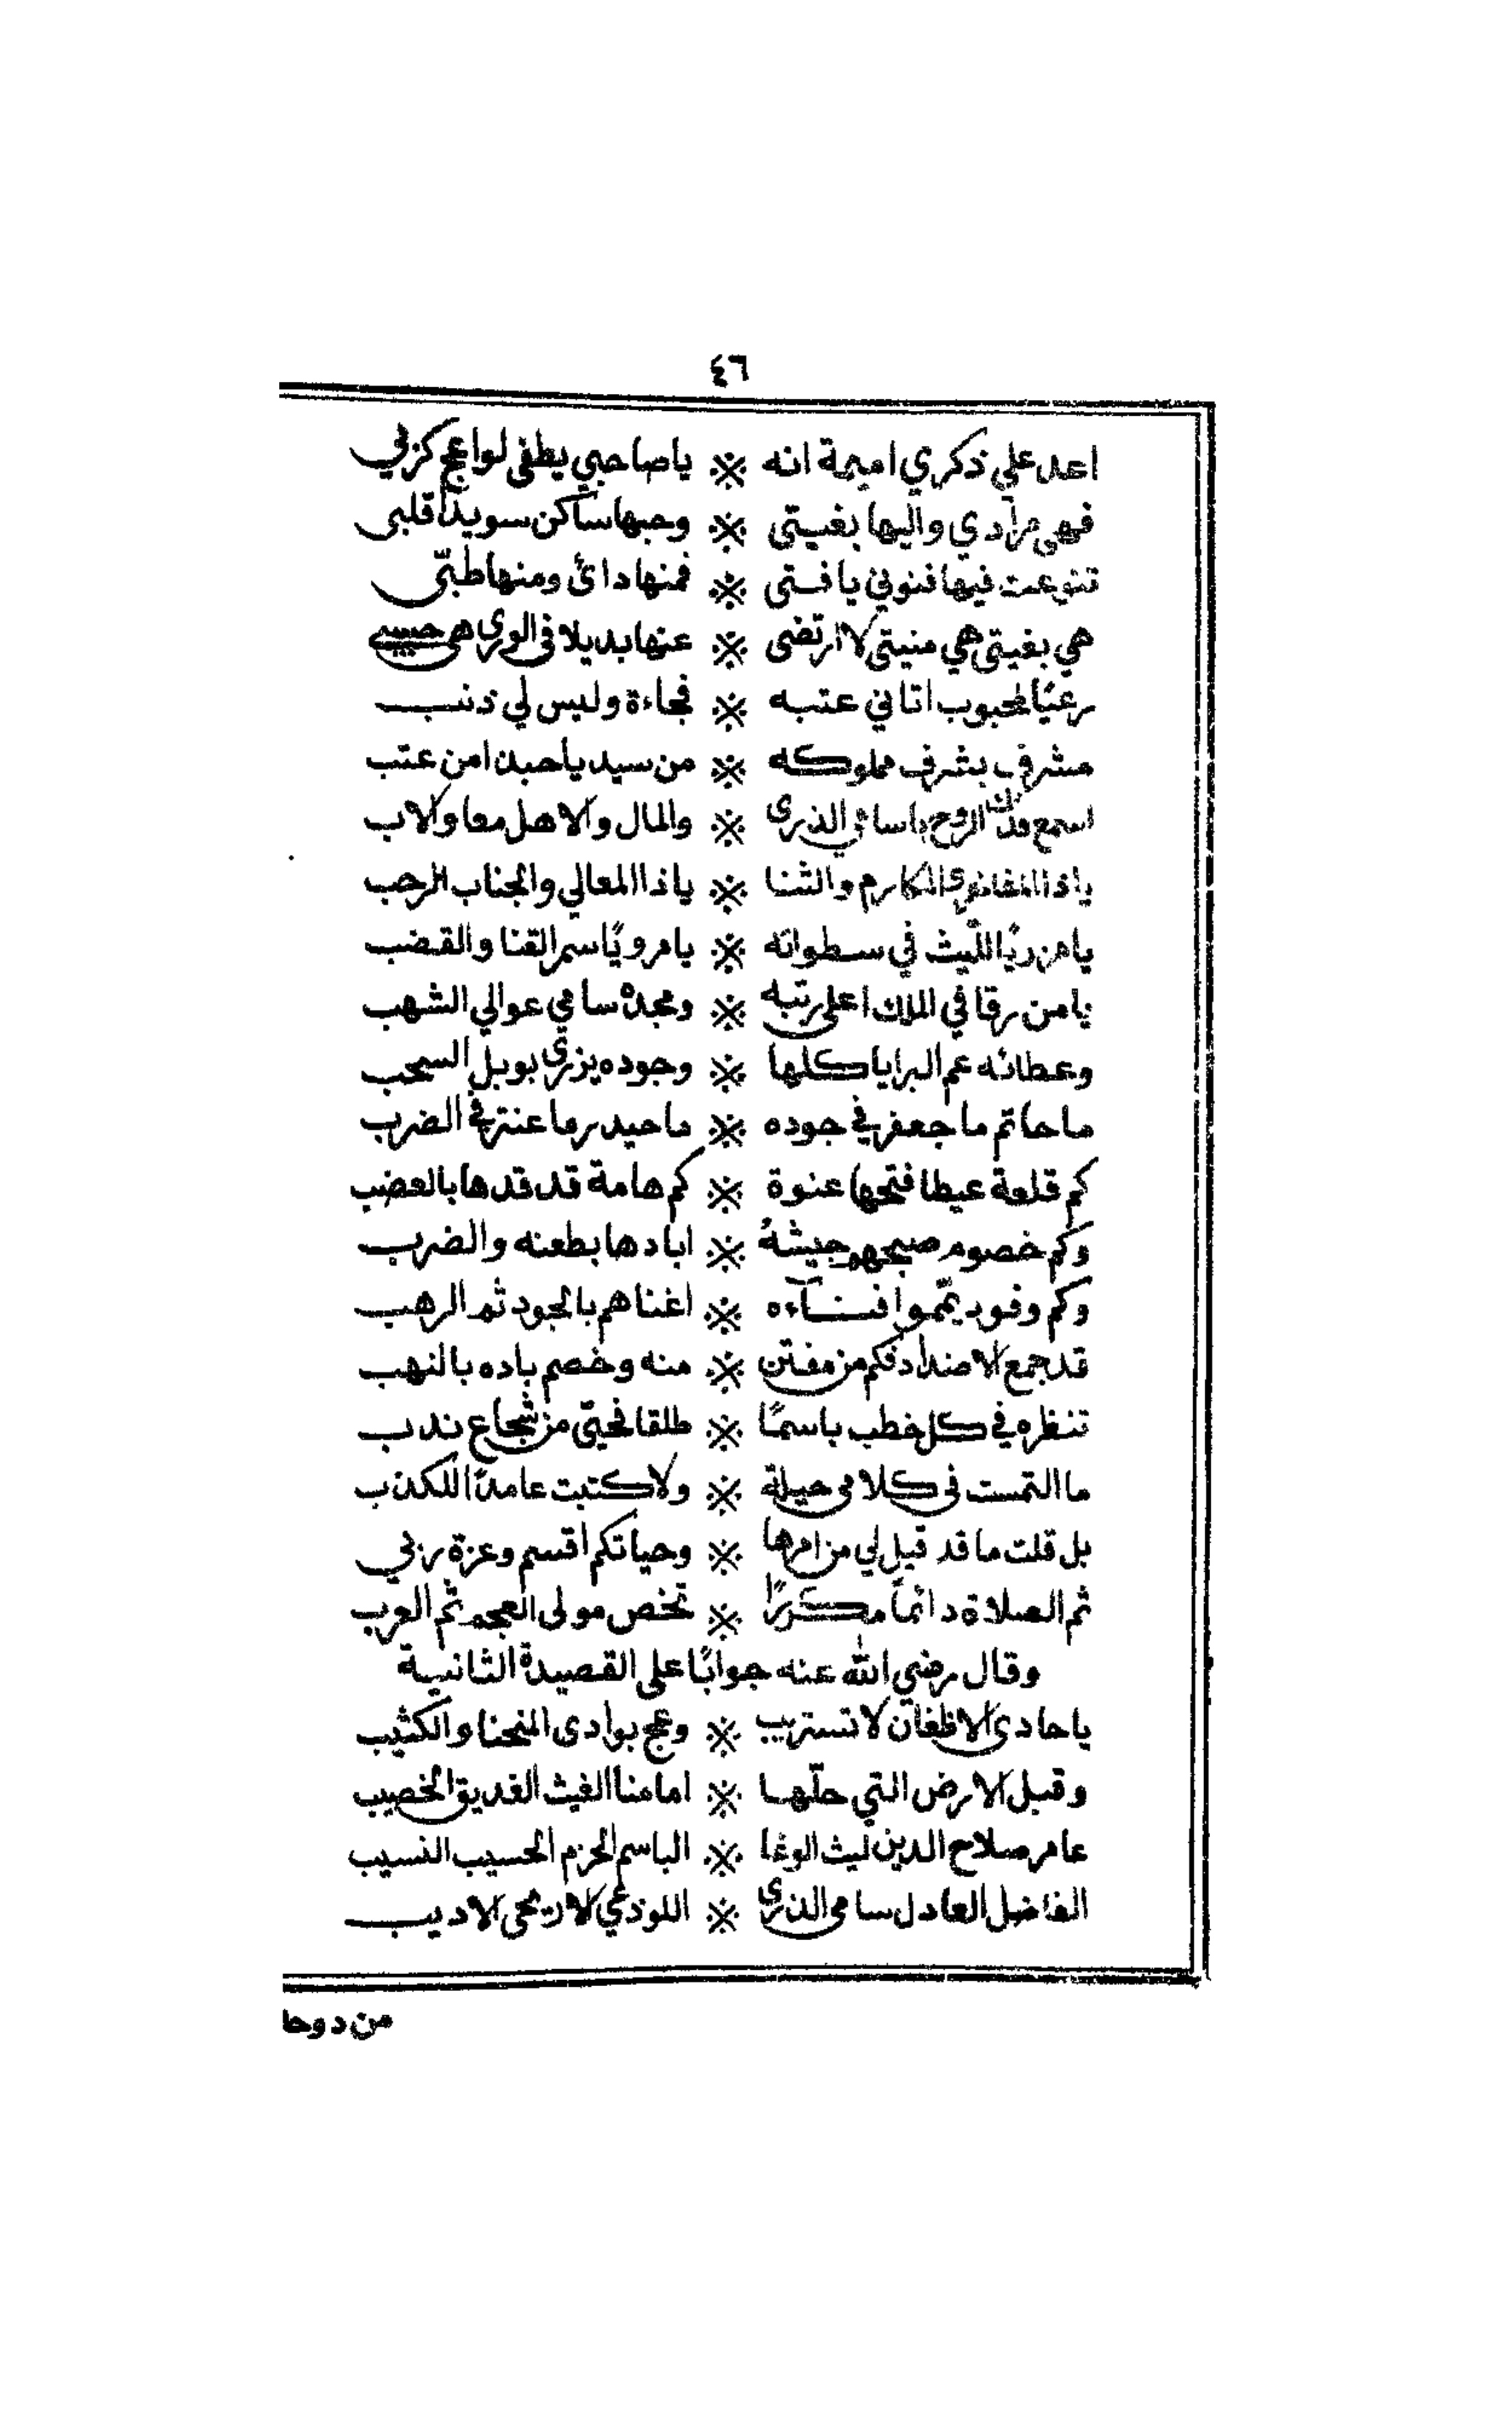 ٤٦
اعد علي ذكري اميمة انه ※ يا صاحبي يطفى لواعج كربي
فهى مرادي واليها بغيتى ※ وحبها ساكن سويدا قلبى
تنوعت فيها فنوني يا فتى ※ فمنها دائ ومنها طبّى
هي بغيتى هي منيتى لا ارتضى ※ عنها بديلا فى الورى هى حسبى
رعيًا لمحبوب اتاني عتبه ※ فجاءة وليس لي ذنب
مشرف بشرف مملوكه ※ من سيد يا حبذا من عتب
اسمع فدتك الروح يا سامى الذرى ※ والمال والاهل معا والاب
يا ذا المفاخر والمكارم والثنا ※ يا ذا المعالي والجناب الرحب
يا مزريًا الليث في سطواته ※ يا مرويًا سمر القنا والقضب
يا من رقا في الملك اعلى رتبه ※ ومجده سامي عوالي الشهب
وعطائه عم البرايا كلها ※ وجوده يزرى بوبل السحب
ما حاتم ما جعفر في جوده ※ ما حيدر ما عنتر في الضرب
كم قلعة عيطا فتحها عنوة ※ كم هامة قد قدها بالعضب
وكم خصوم صبحهم جيشهُ ※ ابادها بطعنه والضرب
وكم وفود يمّموا فنآءه ※ اغناهم بالجود ثم الرهب
قد جمع الاضداد فكم من مفتن ※ منه وخصم باده بالنهب
تنظره في كل خطب باسمًا ※ طلقا فحيّى من شجاع ندب
ما التمست فى كلامى حيلة ※ ولا كتبت عامدًا للكذب
بل قلت ما قد قيل لي من امرها ※ وحياتكم اقسم وعزة ربي
ثم الصلاة دائماً مكررًا ※ تخص مولى العجم ثم العرب
وقال رضي الله عنه جوابًا على القصيدة الثانية
يا حادى الاظعان لا تستريب ※ وعج بوادى المنحنا والكثيب
وقبل الارض التي حلّها ※ امامنا الغيث الغديق الخصيب
عامر صلاح الدين ليث الوغا ※ الباسم الحزم الحسيب النسيب
الفاضل العادل سامى الذرى ※ اللوذعي الاريحى الاديب
من دوحا